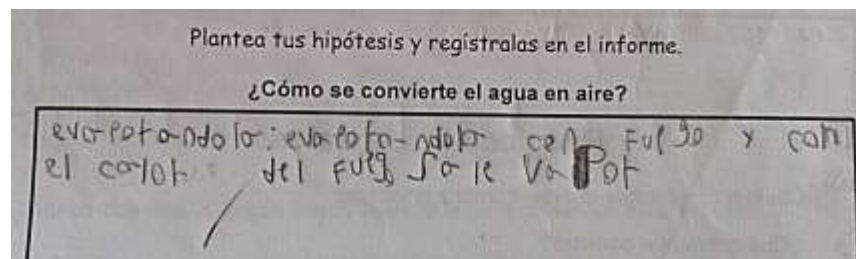 Plantea tus hipótesis y regístralas en el informe.
¿Cómo se convierte el agua en aire?
evaporandolo: evaporandolo con Fuego y con
el calor del Fuego Sale VaPor